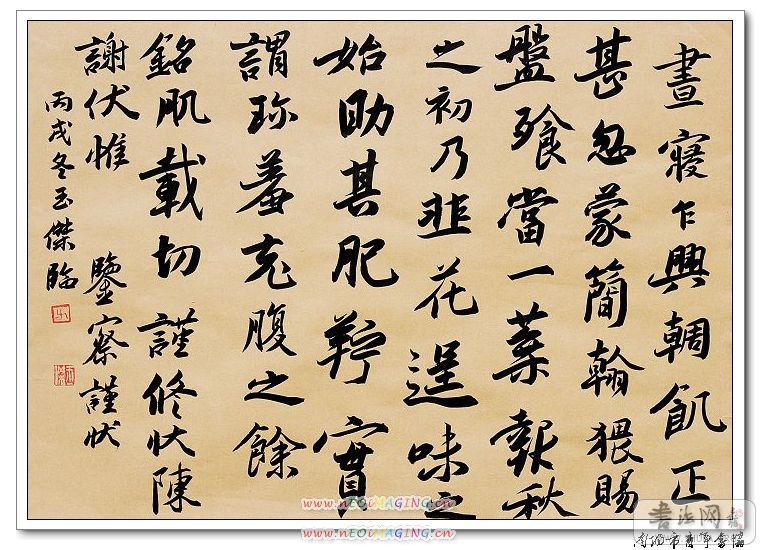 晝寢乍興輖飢正
甚忽蒙簡翰猥賜
盤飧當一葉報秋
之初乃韭花逞味之
始助其肥羜實
謂珍羞充腹之餘
銘肌載切謹修狀陳
謝伏惟 鑒察謹狀
丙戌冬玉傑臨
www.nEOiMAGING.cn
www.nEOiMAGING.cn
书法网